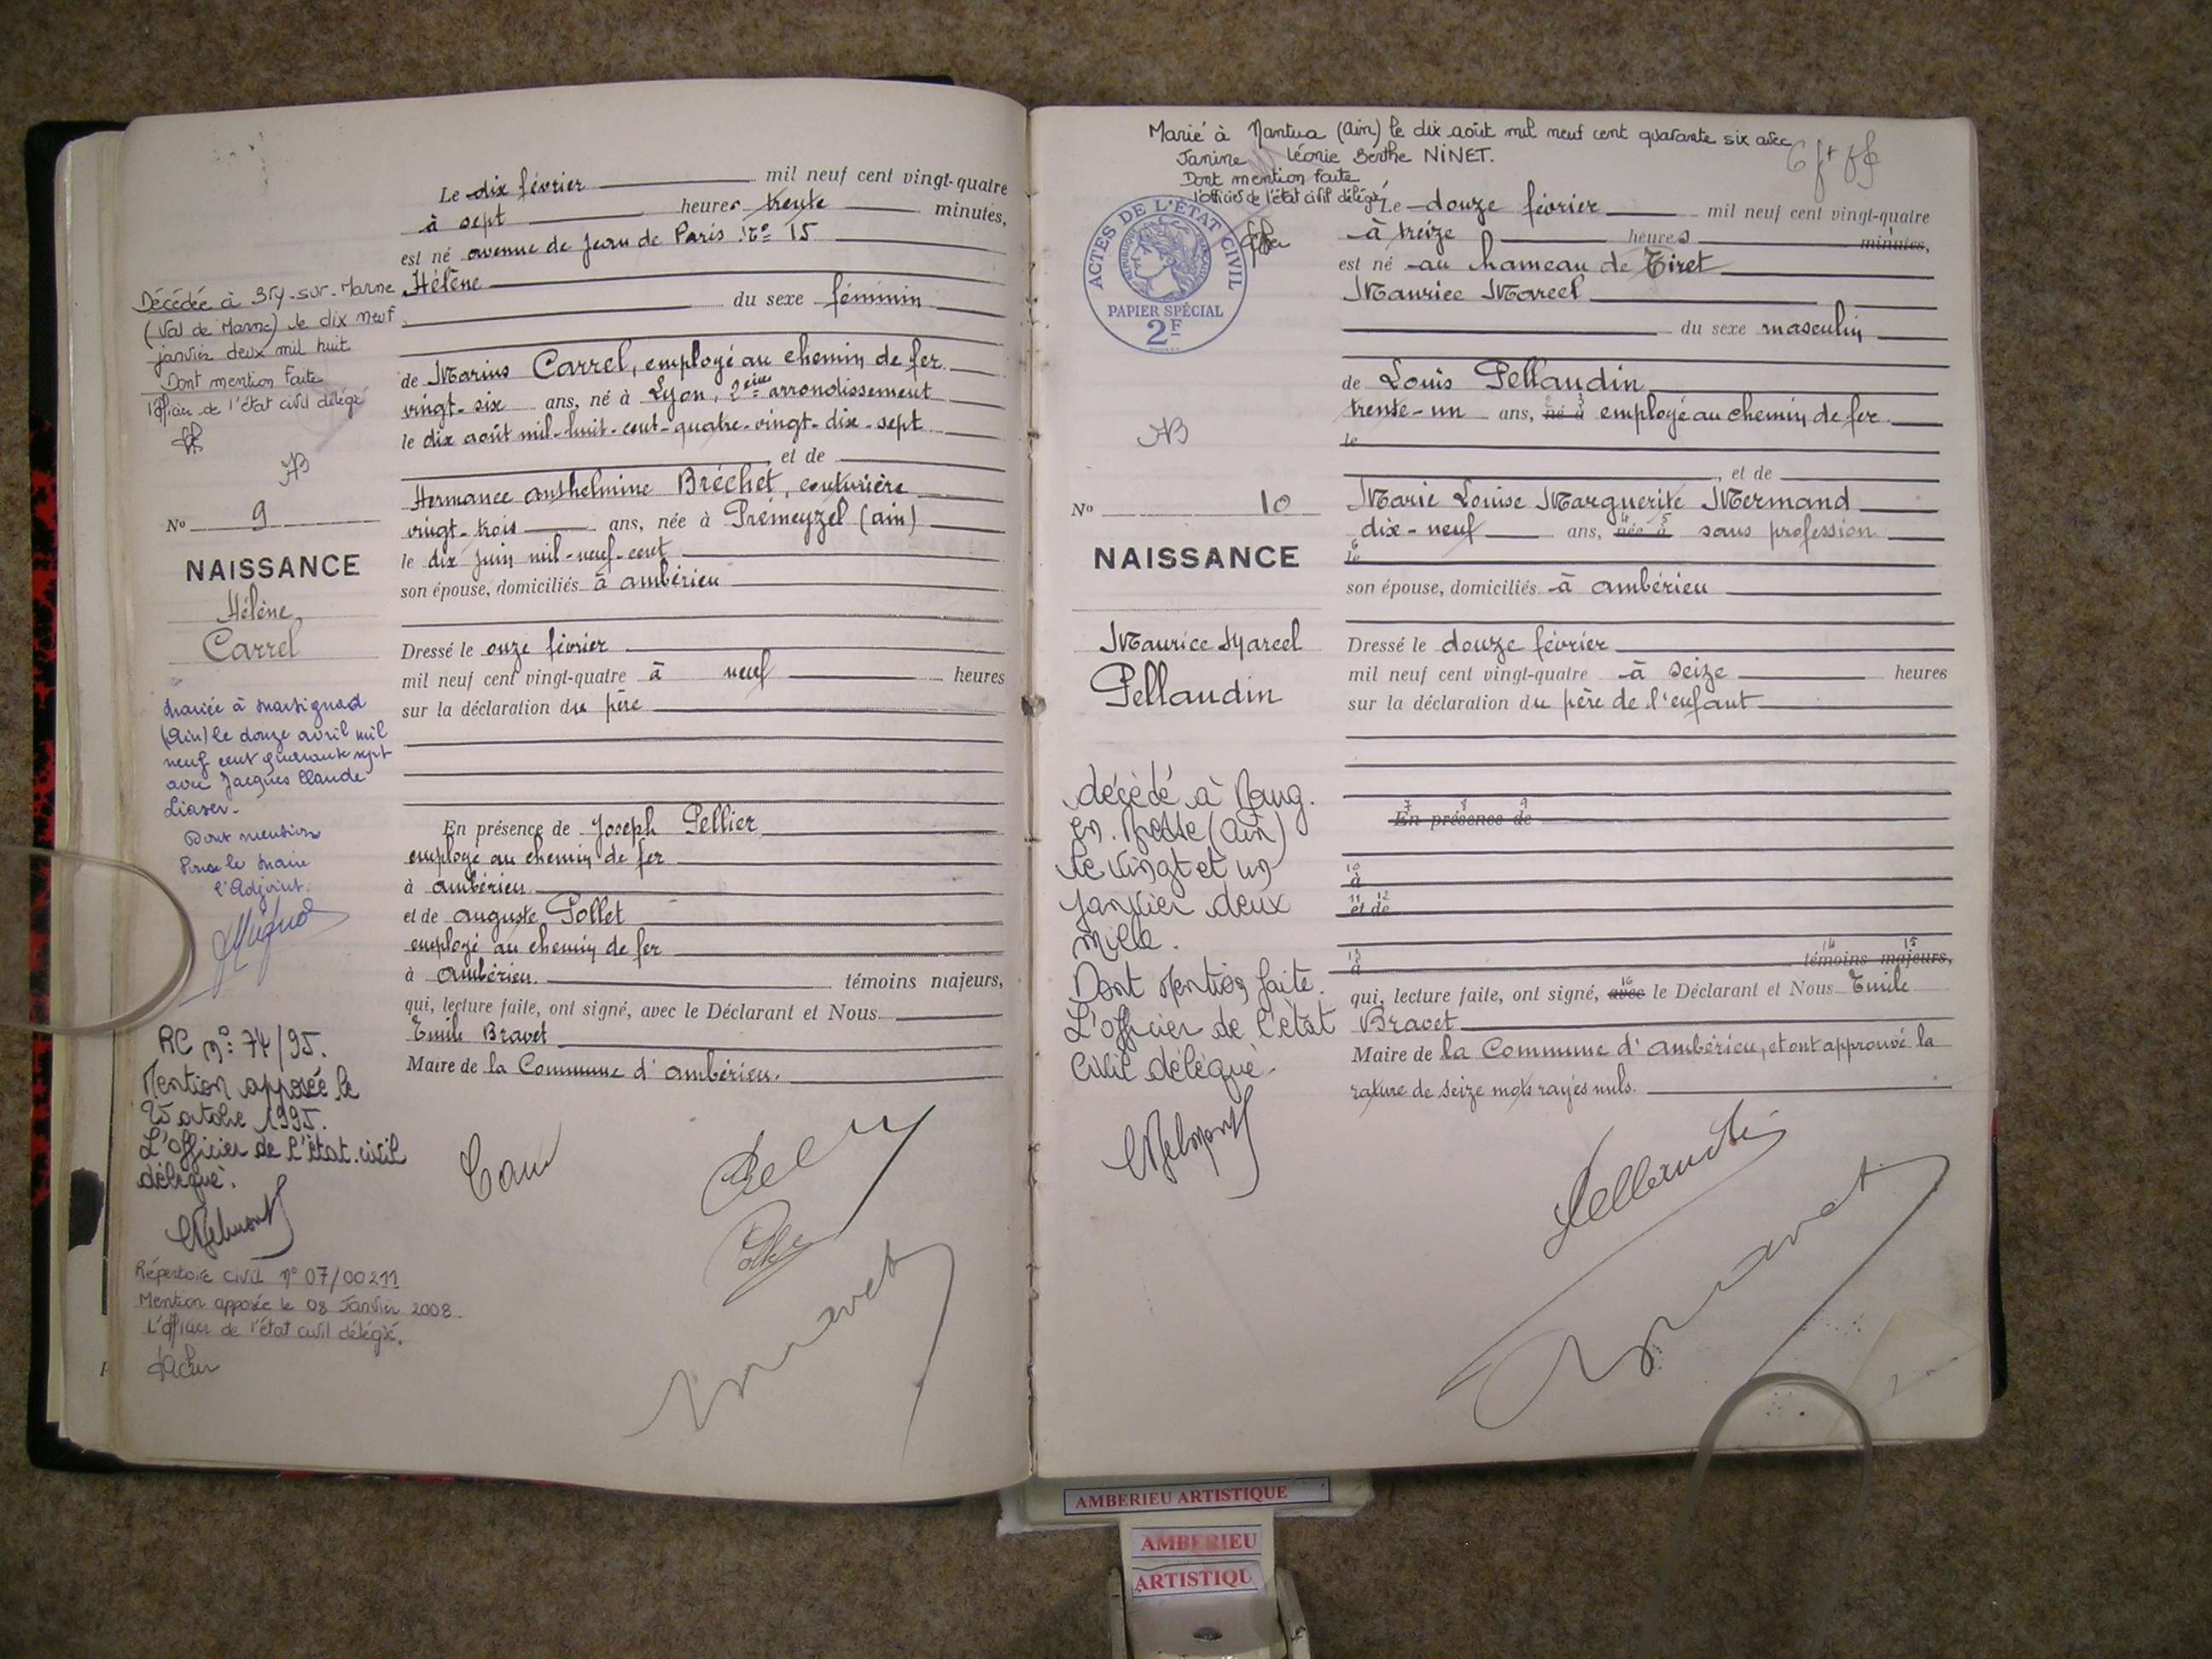 Le dix février mil neuf cent vingt-quatre
à sept heures trente minutes,
est né avenue de Jean de Paris No 15
Hélène
du sexe féminin
de Marius Carrel, employé au chemin de fer
vingt-six ans, né à Lyon, 2eme arrondissement
le dix août mil-huit-cent-quatre-vingt-dix-sept
et de
Hermance Anthelmine Bréchet, couturière
vingt-trois ans, née à Premeyzel (Ain)
le dix juin mil-neuf-cent
son épouse, domiciliés à Ambérieu
Dressé le onze février
mil neuf cent vingt-quatre à neuf heures
sur la déclaration du père
En présence de Joseph Pellier
employé au chemin de fer
à Ambérieu
et de Auguste Pollet
employé au chemin de fer
à Ambérieu. témoins majeurs,
qui, lecture faite, ont signé, avec le Déclarant et Nous
Emile Bravet
Maire de la Commune d'Ambérieu.
Décédée à Bry-sur-Marne
(Val de Marne) le dix neuf
janvier deux mil huit
Dont mention faite
l'officier de l'état civil délégué
AB
No 9
NAISSANCE
Hélène
Carrel
Mariée à Martignat
(Ain) le douze avril mil
neuf cent quarante sept
avec Jacques Claude
Dont mention
Pour le Maire
l'Adjoint.
RC n°: 74/95.
Mention apposée le
25 octobre 1995.
L'officier de l'état civil
délégué.
Répertoire civil n° 07/00211
Mention apposée le 08 Janvier 2008.
L'officier de l'état civil délégué.
Bravet
Marié à Nantua (Ain) le dix août mil neuf cent quarante six avec
Janine Léonie Berthe NINET.
Dont mention faite
l'officier de l'état civil délégué
ACTES DE L'ÉTAT CIVIL
RÉPUBLIQUE FRANÇAISE
PAPIER SPÉCIAL
2F
Le douze février mil neuf cent vingt-quatre
à treize heures minutes,
est né au hameau de Tiret
Maurice Marcel
du sexe masculin
de Louis Pellaudin
trente-un ans, né à employé au chemin de fer
le
et de
Marie Louise Marguerite Mermand
dix-neuf ans, née à sans profession
le
son épouse, domiciliés à Ambérieu
Dressé le douze février
mil neuf cent vingt-quatre à seize heures
sur la déclaration du père de l'enfant
7 8 9
En présence de
10
à
11 12
et de
13 14 15
à témoins majeurs,
16
qui, lecture faite, ont signé, avec le Déclarant et Nous Emile
Bravet
Maire de la Commune d'Ambérieu, et ont approuvé la
rature de seize mots rayés nuls.
AB
No 10
NAISSANCE
Maurice Marcel
Pellaudin
décédé à Bourg.
en. Bresse (Ain)
le vingt et un
janvier deux
mille.
Dont Mention faite.
L'officier de l'état
Civil délégué.
Pellaudin
Bravet
AMBERIEU ARTISTIQUE
AMBERIEU
ARTISTIQU